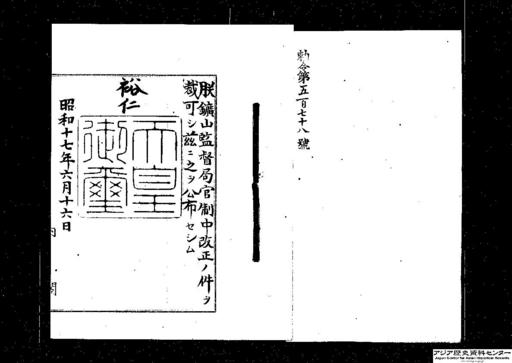 勅令第五百七十八號
朕鑛山監督局官制中改正ノ件ヲ
裁可シ茲ニ之ヲ公布セシム
裕仁
天皇
御璽
昭和十七年六月十六日
内閣
アジア歴史資料センター
Japan Center for Asian Historical Records